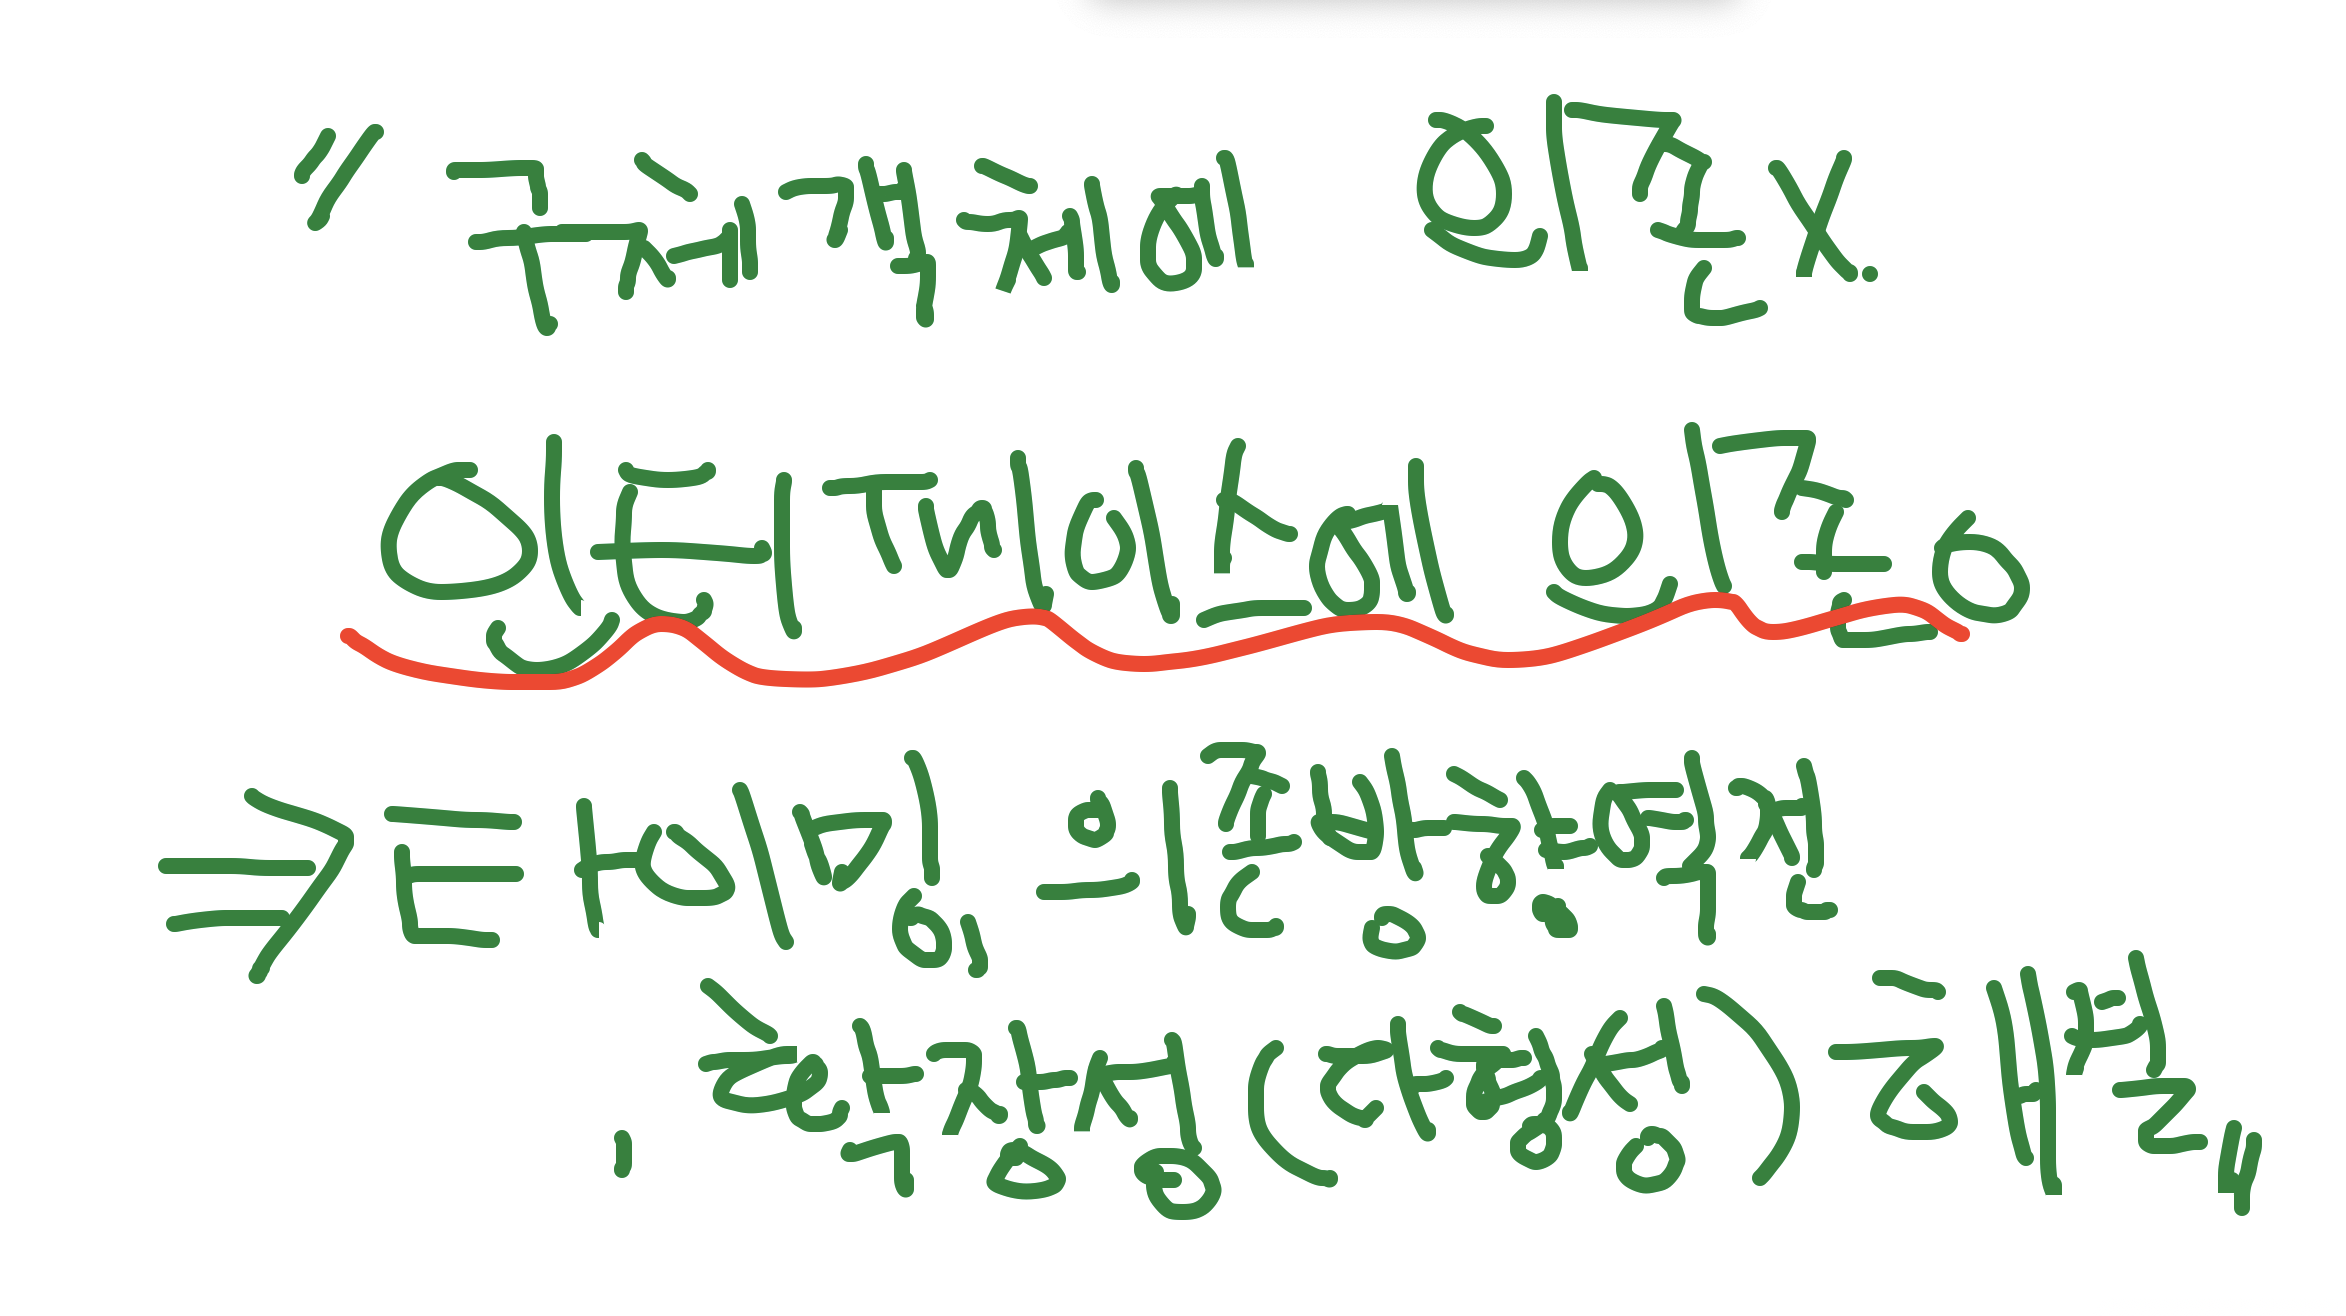 " 구체객체에 의존 X.
인터페이스에 의존.
⇒ 타이밍, 의존방향 역전
, 확장성(다형성) 해벌 "